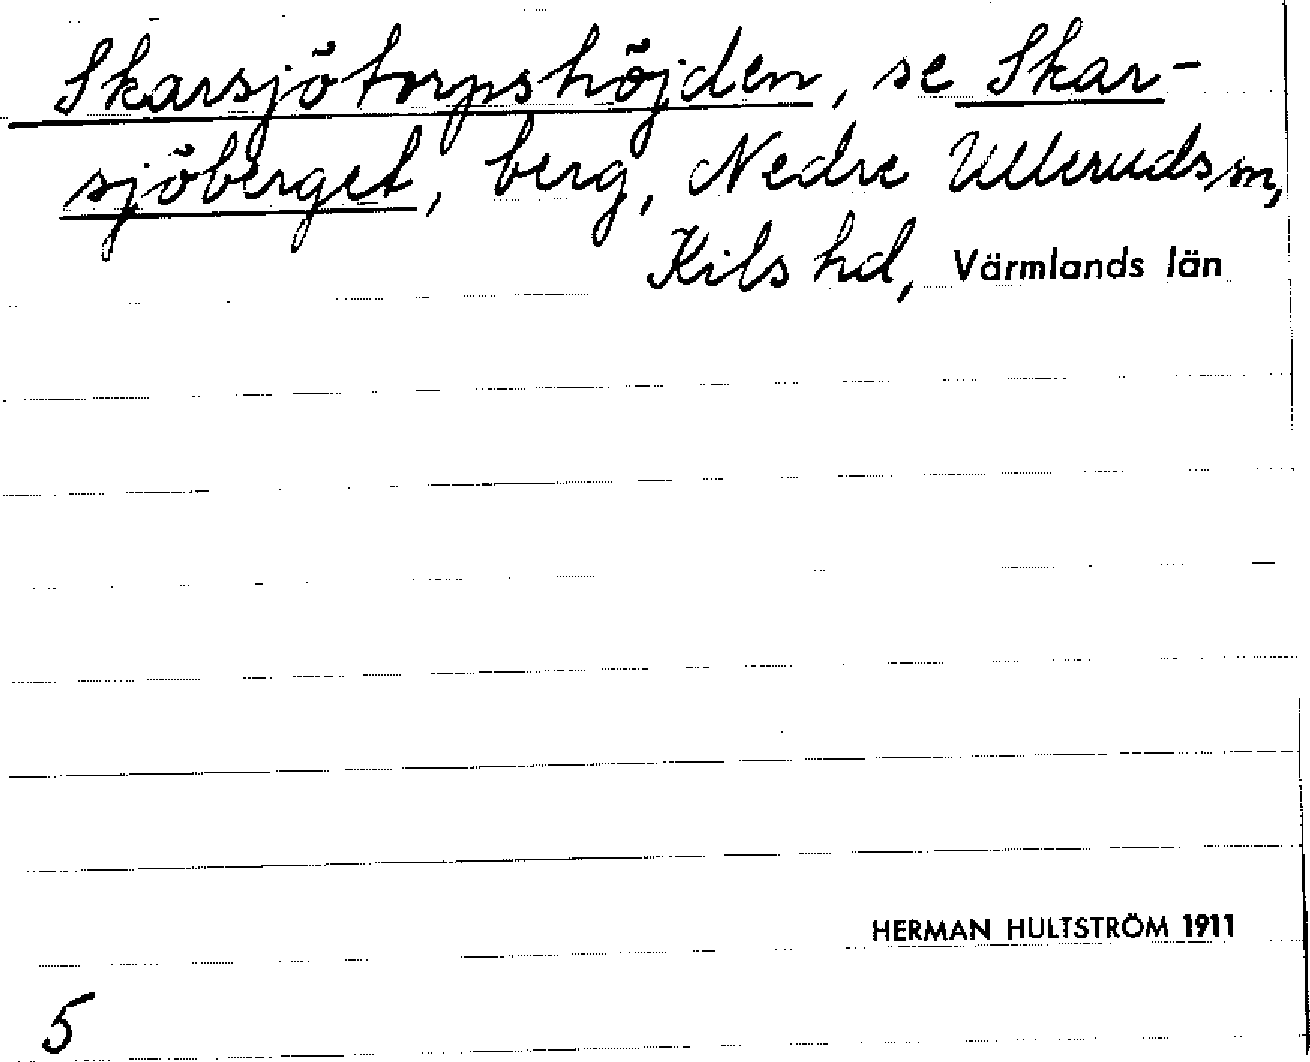 Skarsjötorpshöjden, se Skar-
sjöberget, berg, Nedre Ulleruds sn,
Kils hd, Värmlands län
HERMAN HULTSTRÖM 1911
5